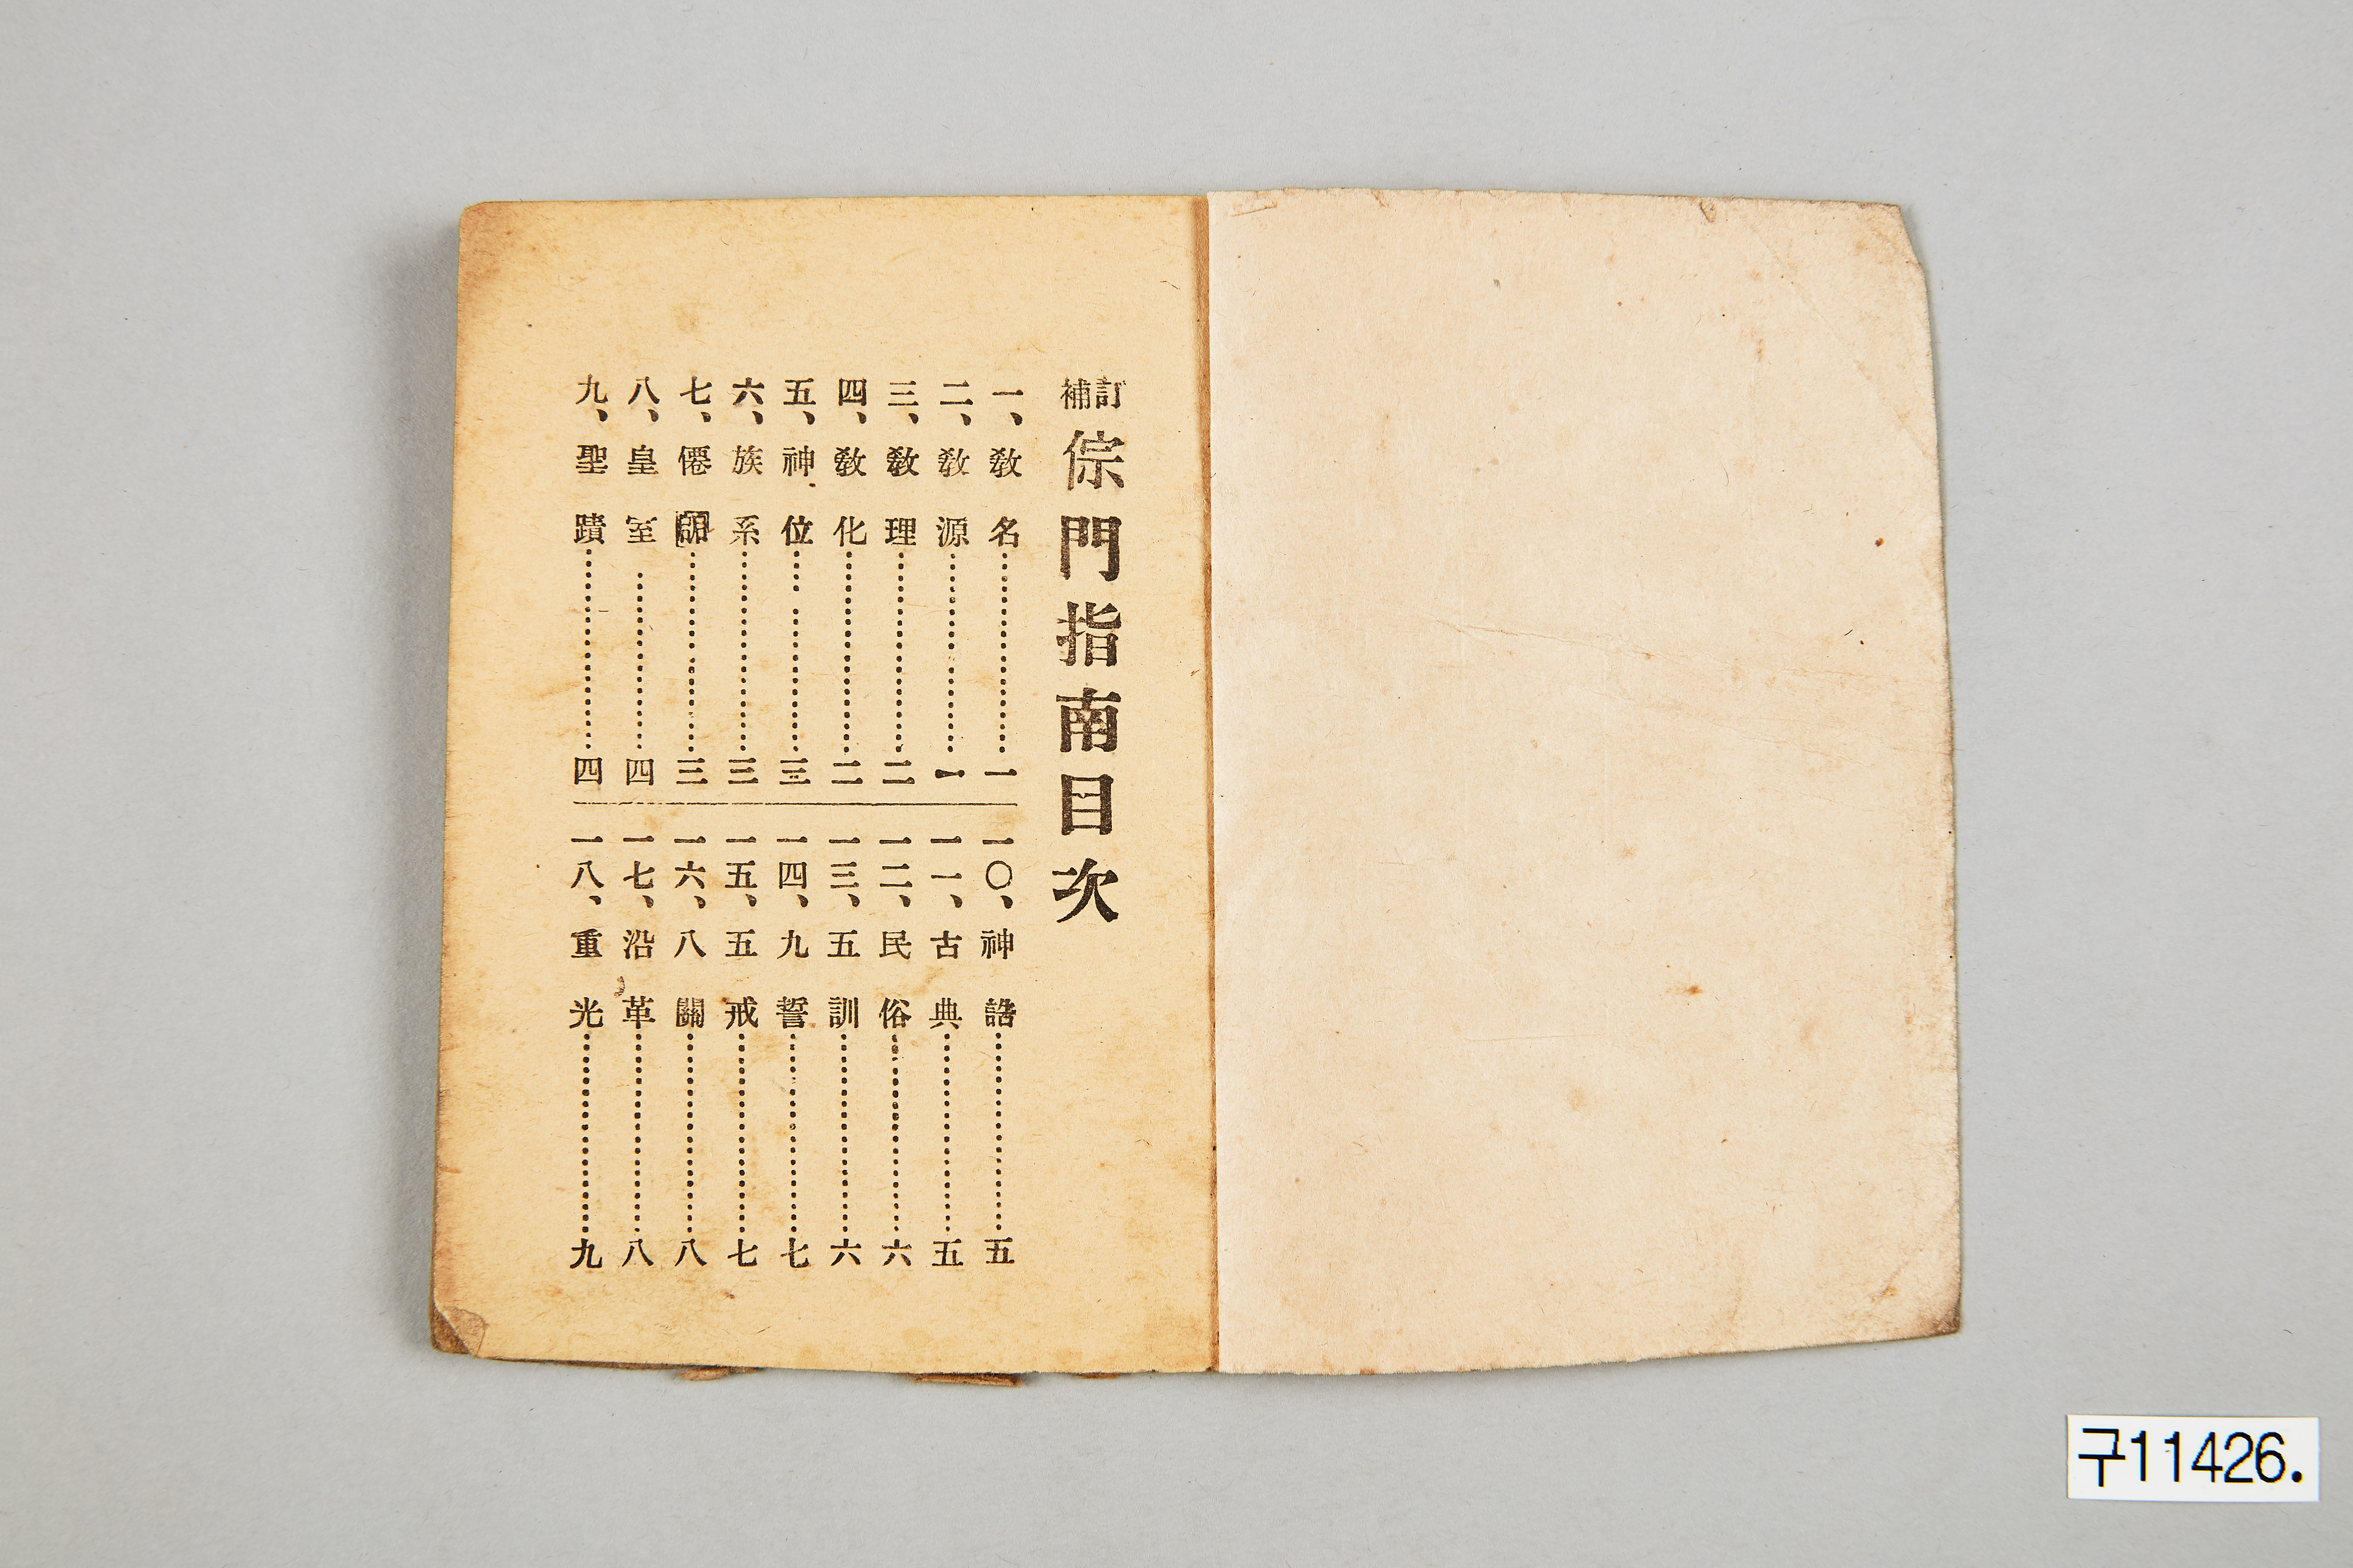 訂補 倧門指南目次
一、敎名……一
二、敎源……一
三、敎理……二
四、敎化……二
五、神位……三
六、族系……三
七、僊……三
八、皇室……四
九、聖蹟……四
一〇、神誥……五
一一、古典……五
一二、民俗……六
一三、五訓……六
一四、九誓……七
一五、五戒……七
一六、八關……八
一七、沿革……八
一八、重光……九
구11426.